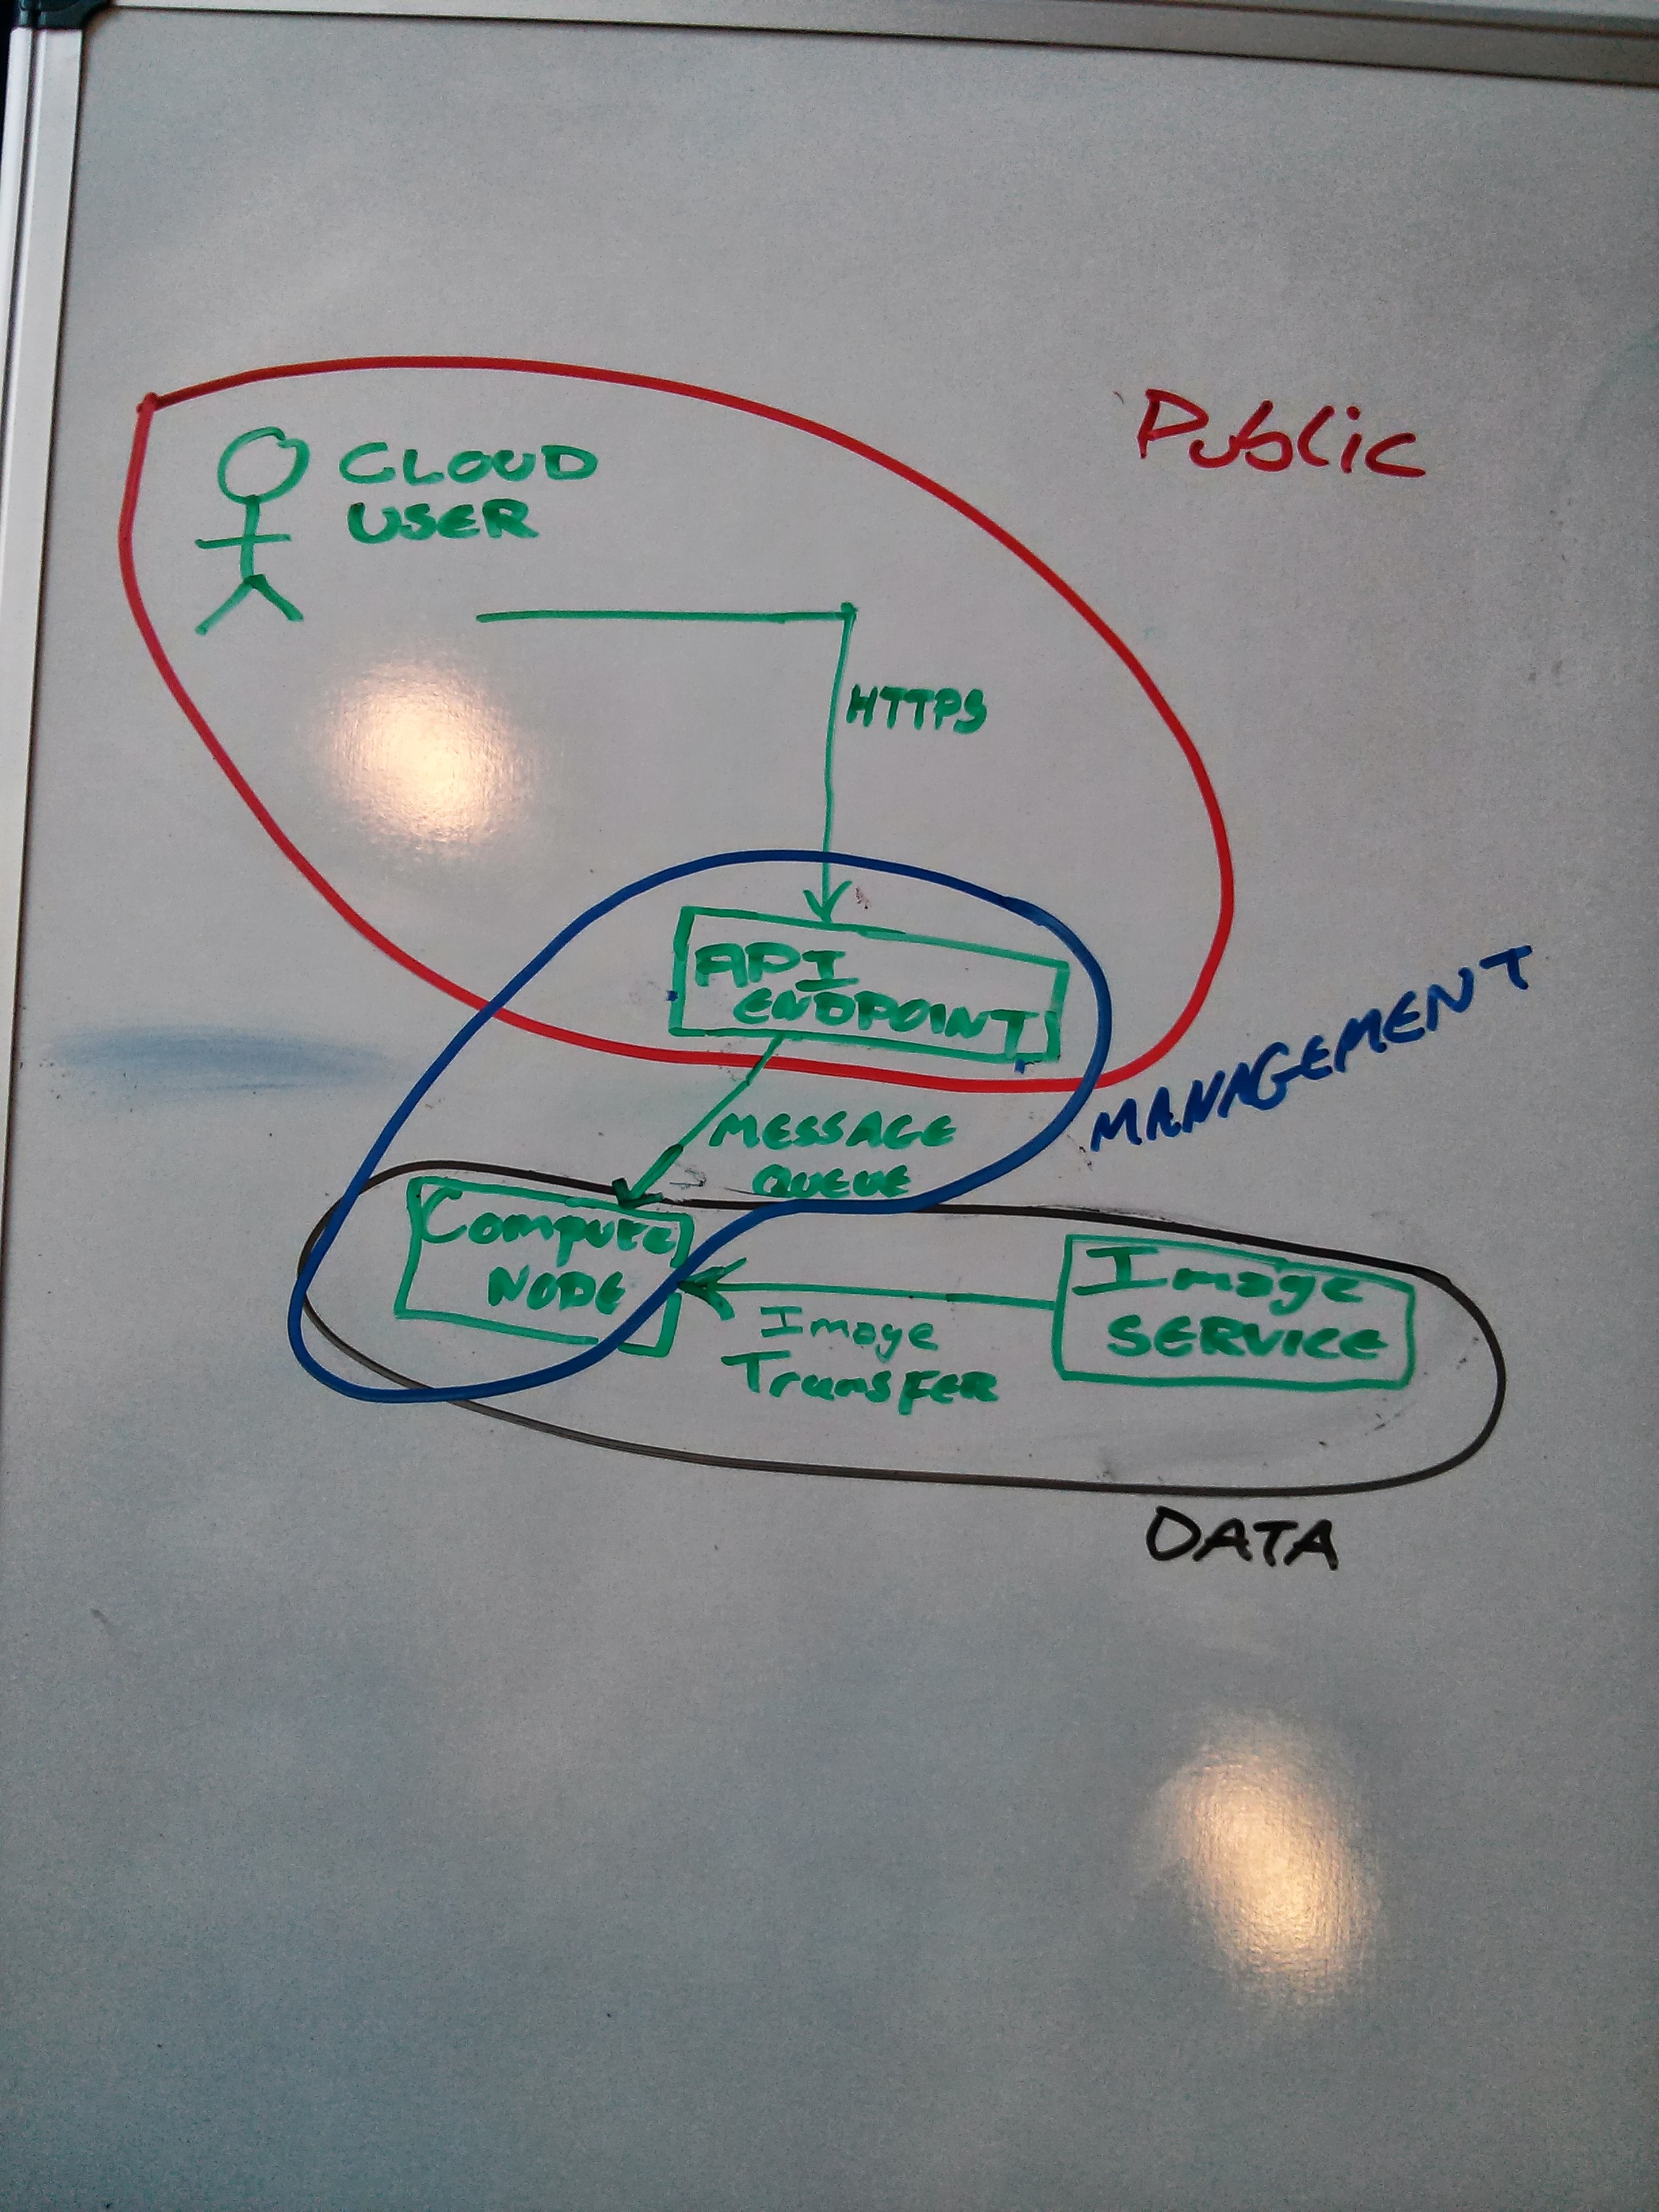 Public
CLOUD
USER
HTTPS
API
ENDPOINT
MANAGEMENT
MESSAGE
QUEUE
Compute
NODE
Image
SERVICE
Image
TransFER
DATA